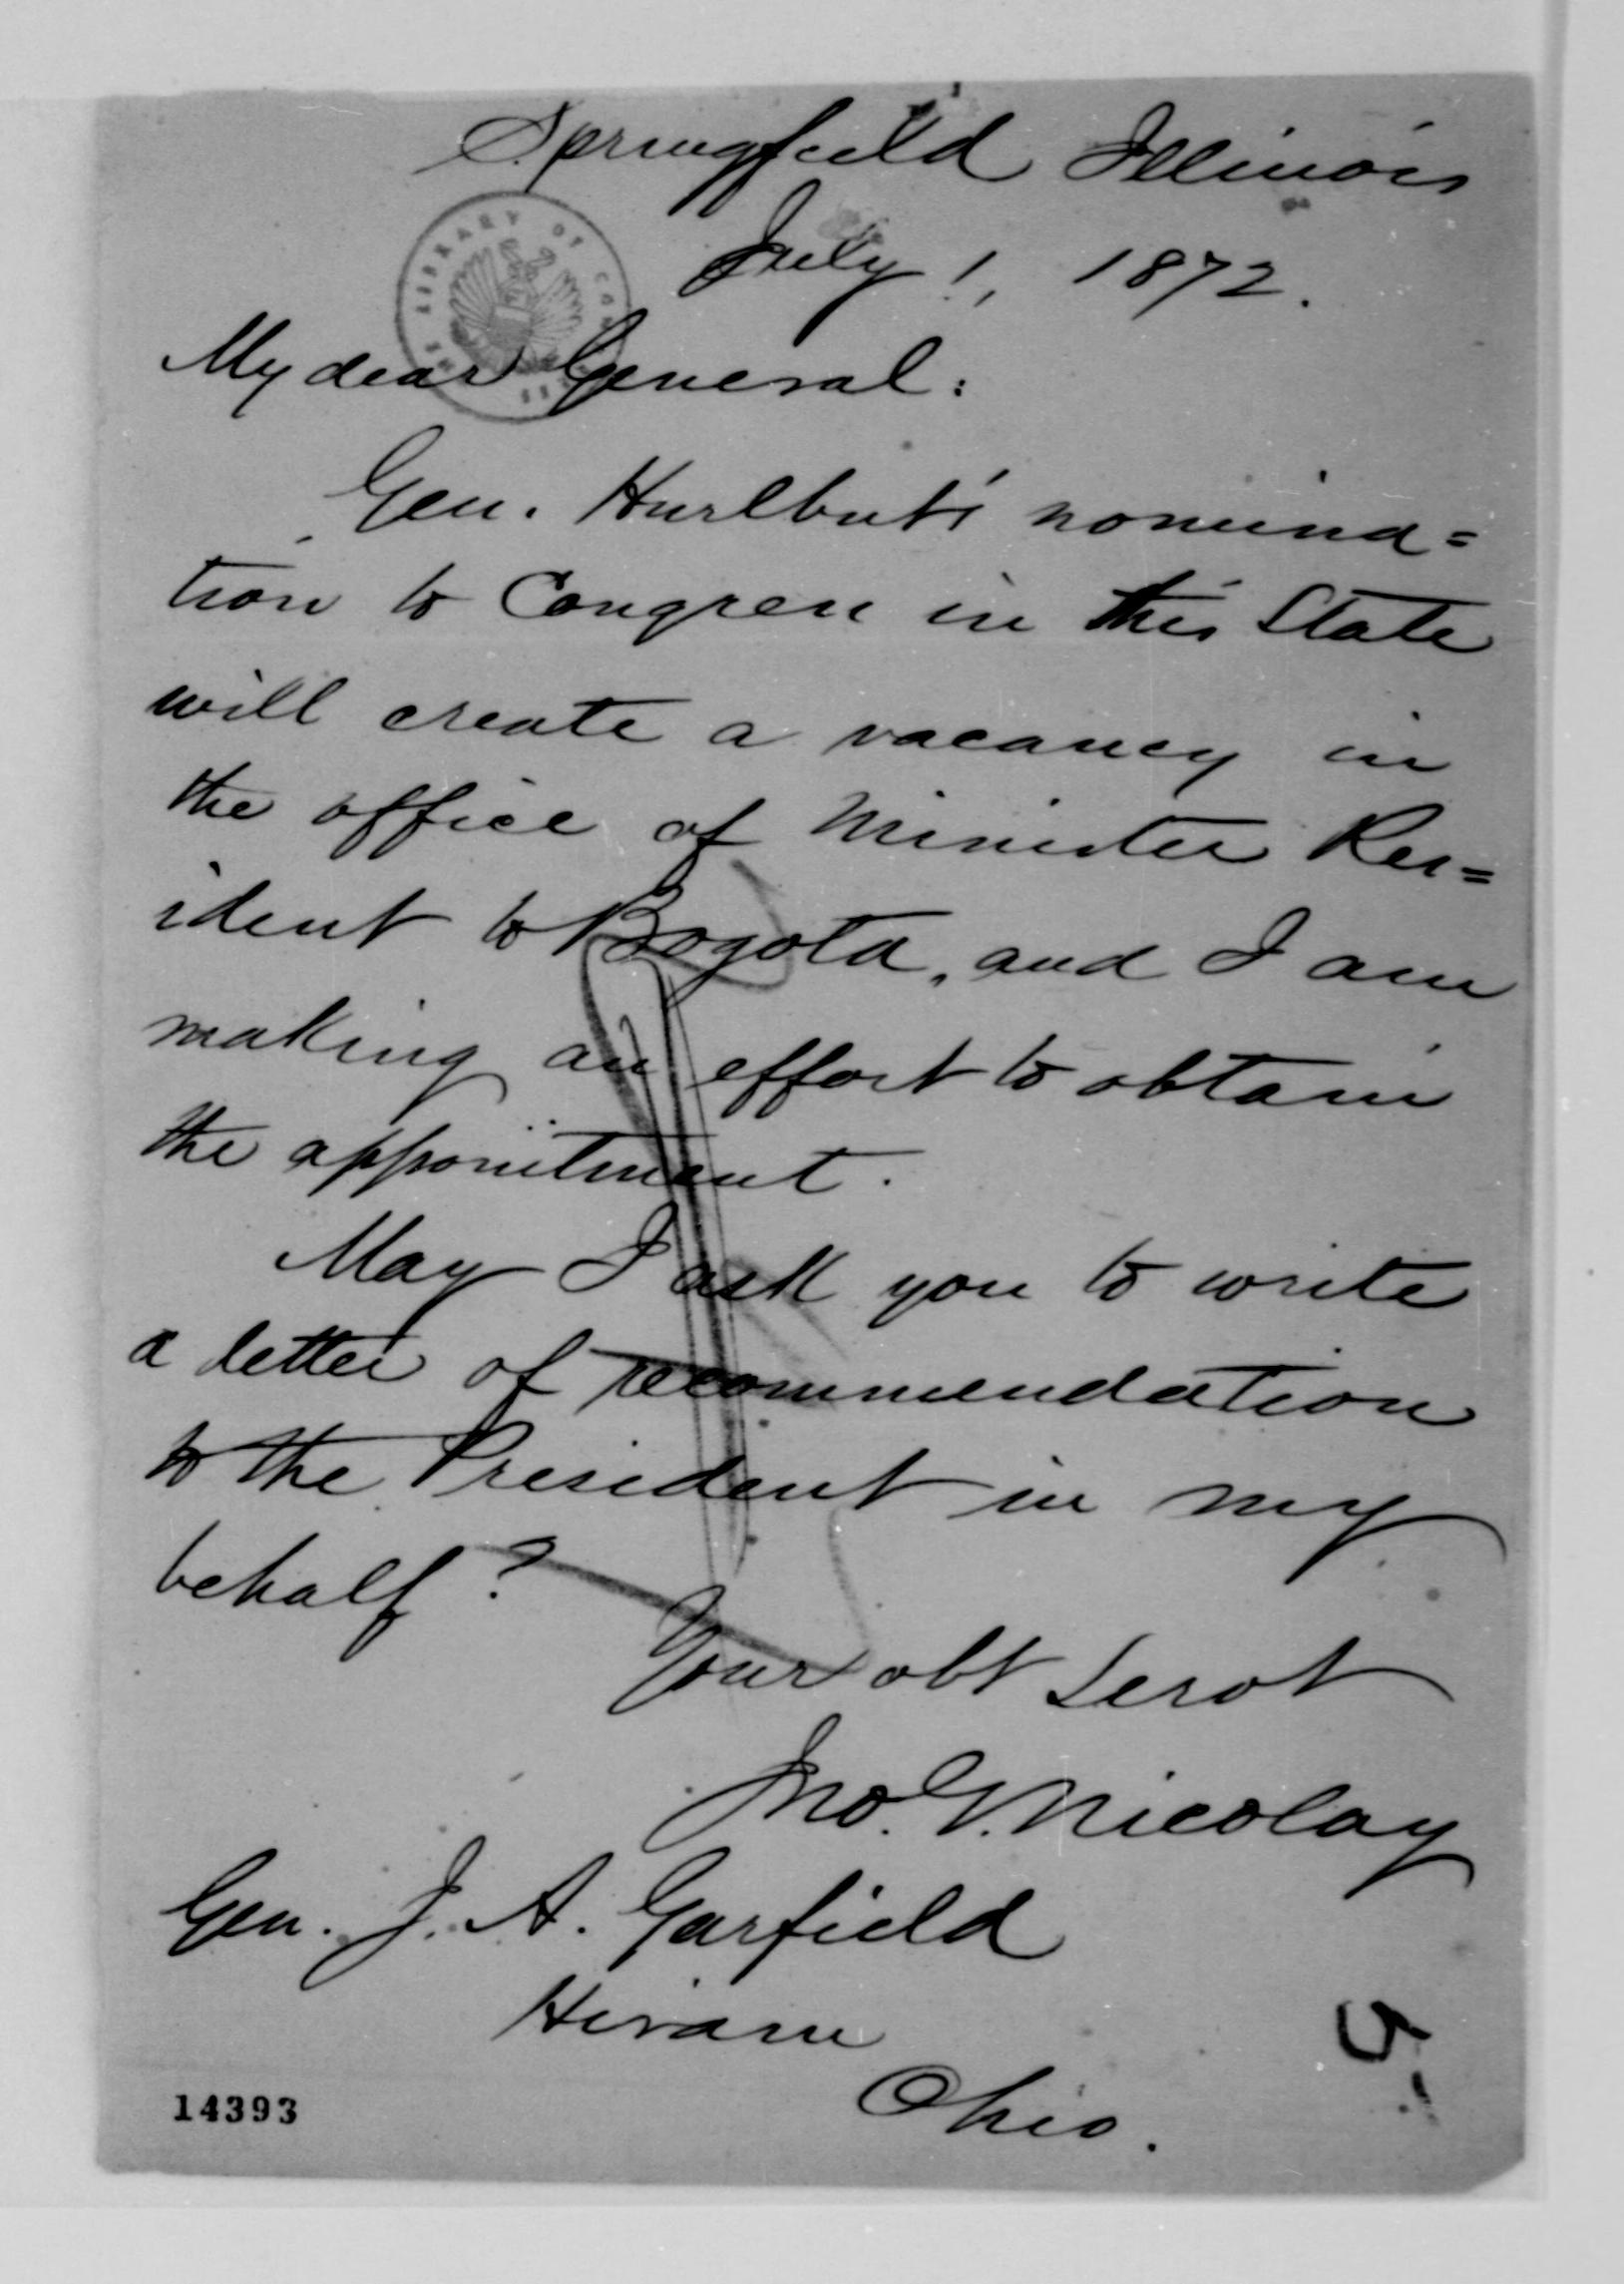 Springfield Illinois
July 1, 1872.
THE LIBRARY OF CON
My dear General:
Gen. Hurlbut's nomina=
tion to Congress in this State
will create a vacancy in
the office of Minister Res=
ident to Bogota, and I am
making an effort to obtain
the appointment.
May I ask you to write
a letter of recommendation
to the President in my
behalf?
Your obt Servt
Jno. G. Nicolay
Gen. J. A. Garfield
Hiram
Ohio.
14393
5